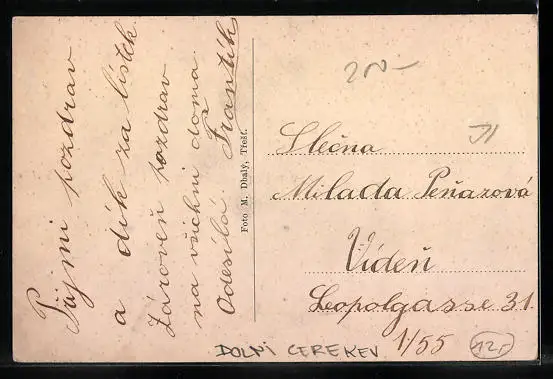 Přijmi pozdrav
a dík za lístek
Zároveň pozdrav
na všichni doma
Odesílá Frantík
Foto M. Dbalý, Třešť.
Slečna
Milada Peňazová
Vídeň
Leopolgasse 31
1/55
DOLNI CEREKEV
12,-